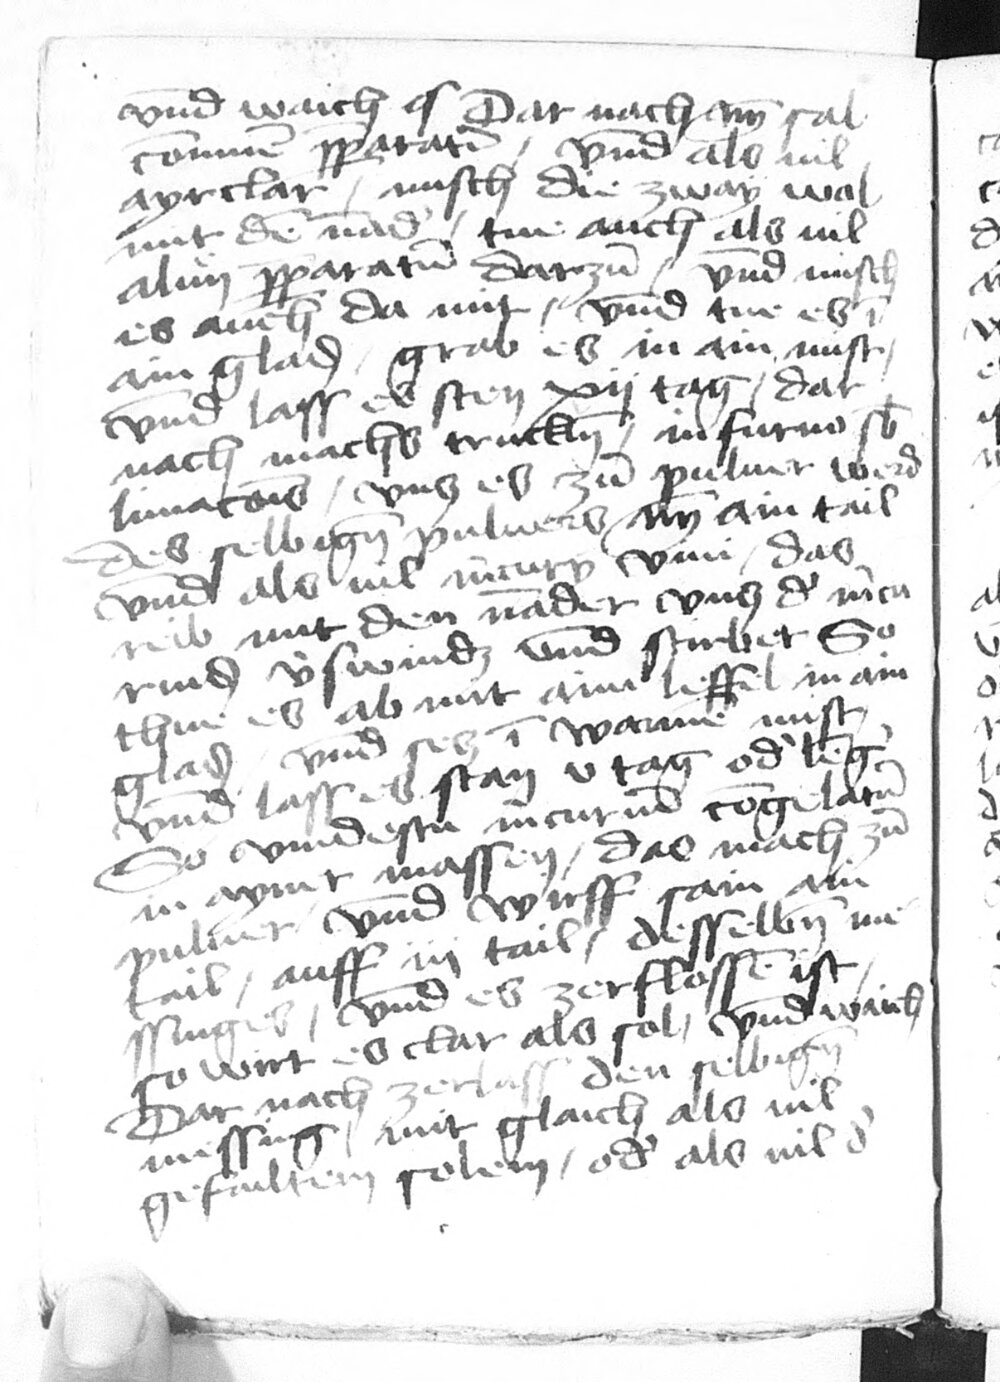 vnd waich es Dar nach nym sal
comune pparatu / vnd als uil
ayrclar / misch die zway wol
mit de nad' / tue auch als uil
alun pparatu darzu / vnd misch
es auch da mit / vnd tue es i
ain glaß / grab es in ain mist /
vnd lass es sten xij tag / dar
nach machs truckn / in furno sb
limacois / vntz es zu puluer werd
des selbign puluers nym ain tail
vnd als uil mcury viui / das
reib mit den nader vntz d' mcu
rius v'swindz vnd stirbet So
thue es ab mit aim leffel in ain
glas / vnd setz i warme mist /
vnd lass es stan v tag od' leg'
So vindestu mcuriu cogelatu
in aynet massen / das mach zu
puluer / vnd wirff sain ain
tail / auff iij tail / desselbn me
ssinges / vnd es zerflosse ist /
so wirt es clar als sol / vnd waich
Dar nach zerlass den selbign
messing / mit glaich als uil
gefailtem solem / od' als uil d'